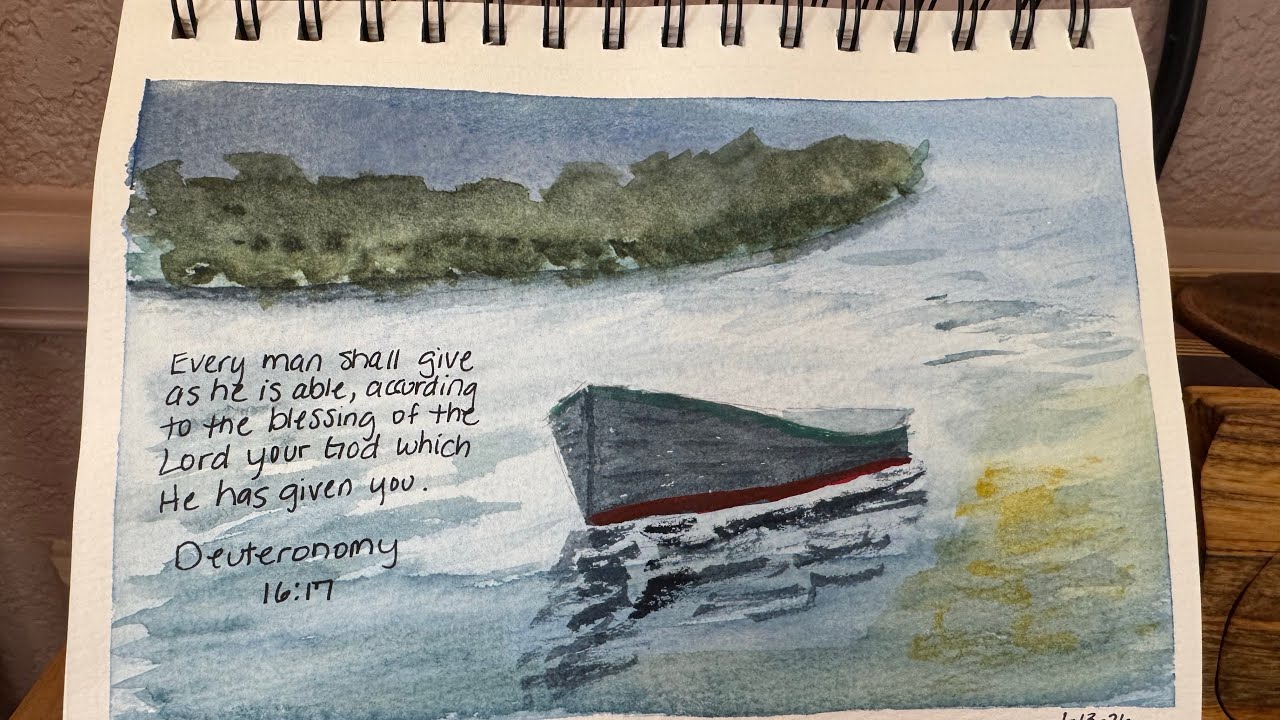 Every man shall give
as he is able, according
to the blessing of the
Lord your God which
He has given you.
Deuteronomy
16:17